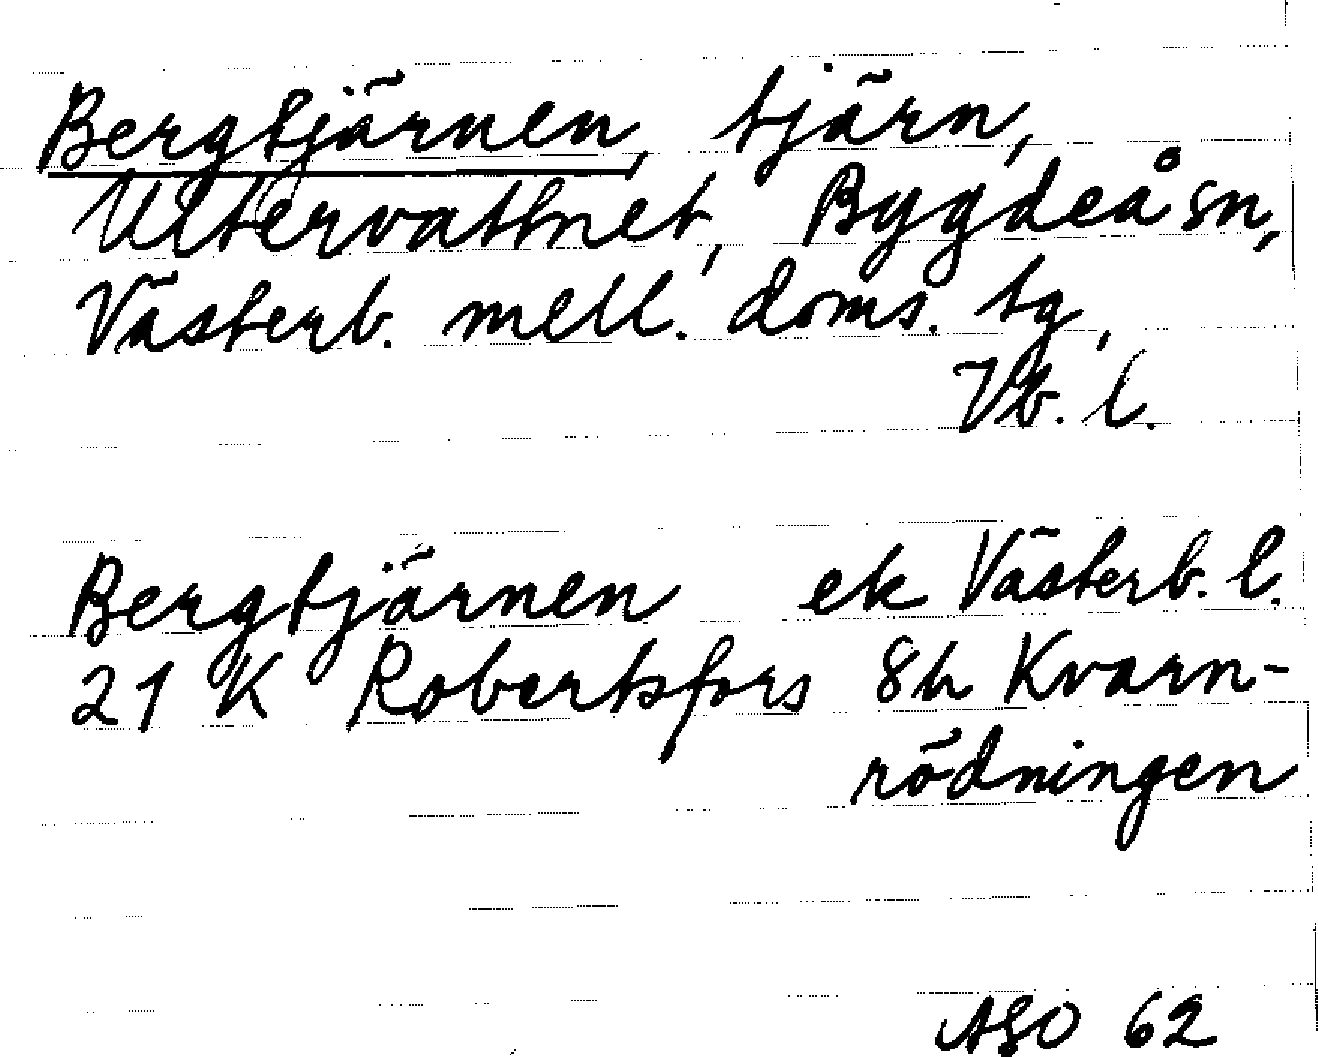 Bergtjärnen, tjärn,
Ultervattnet, Bygdeå sn,
Västerb. mell. doms. tg,
Vb. l.
Bergtjärnen ek Västerb. l.
21 K Robertsfors 8h Kvarn-
rödningen
62